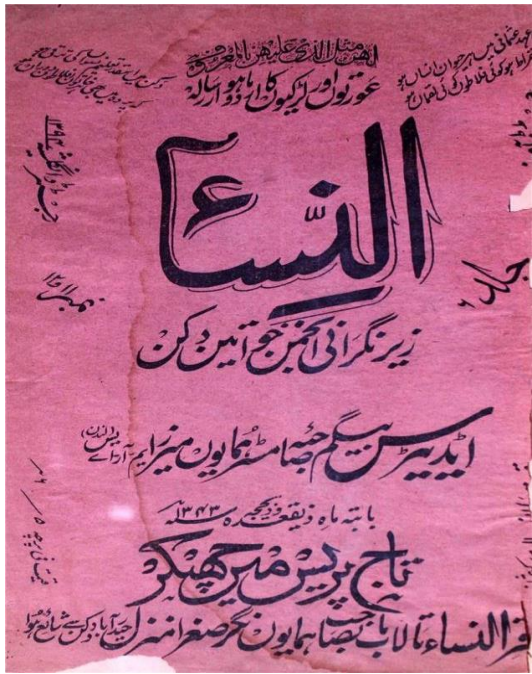 ولھن مثل الذی علیھن بالمعروف
عورتوں اور لڑکیوں کا ماہوار رسالہ
عہد عثمانی میں ہر جوان انسان ہو
النساء
جلد
نمبر ۱۱ و ۱۲
زیر نگرانی انجمن خواتین دکن
ایڈیٹرس بیگم صاحبہ مسٹر ہمایوں میرزا ایم آر اے یس (لندن)
بابتہ ماہ ذیقعدہ و ذیحجہ سنہ ۱۳۴۳
تاج پریس میں چھپکر
دفتر النساء تالاب ماں صاحبہ ہمایوں نگر صغرا منزل حیدرآباد دکن سے شائع ہوا
قیمت فی پرچہ